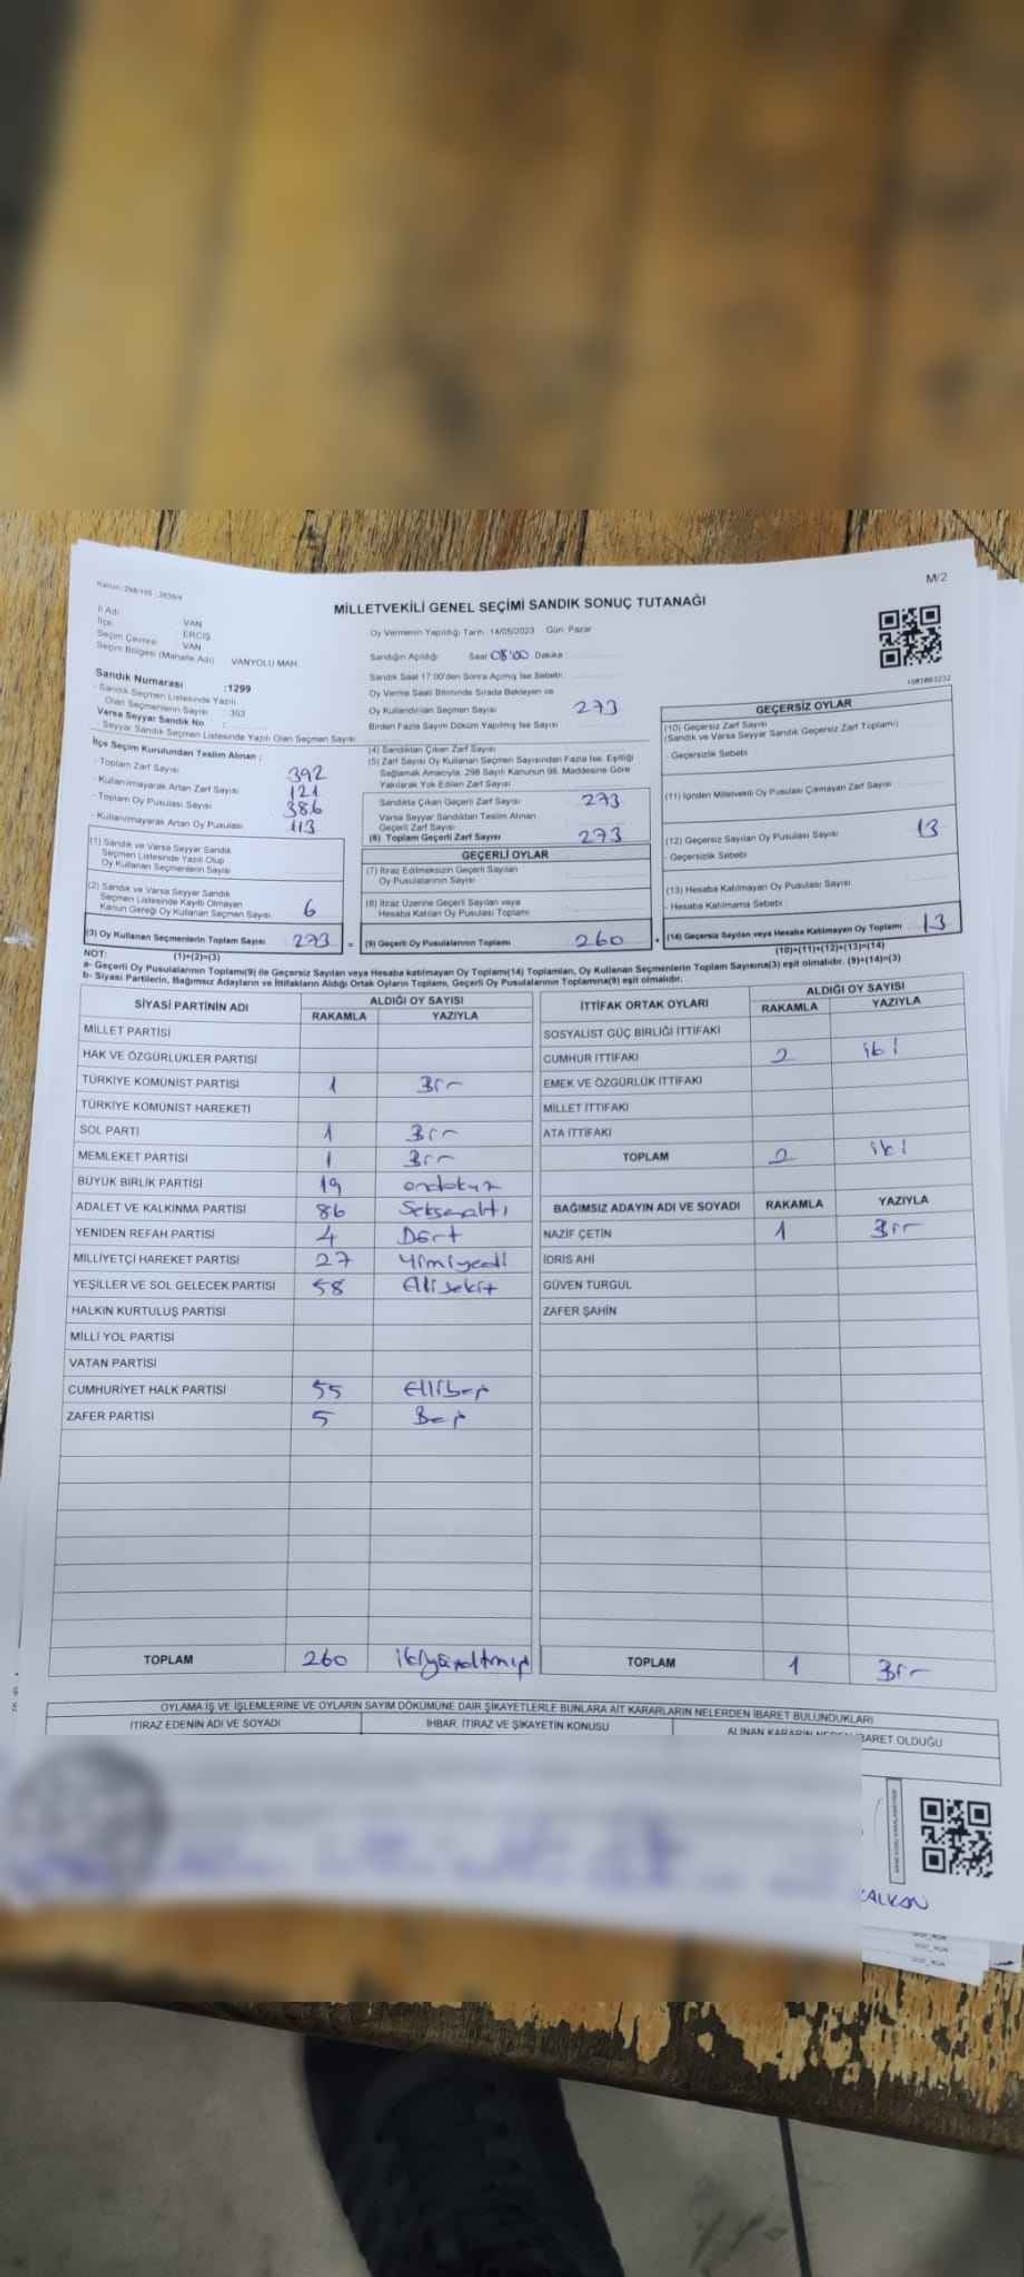 M/2
MİLLETVEKİLİ GENEL SEÇİMİ SANDIK SONUÇ TUTANAĞI
İl Adı : VAN
İlçe : ERCİŞ
Seçim Çevresi : VAN
Seçim Bölgesi (Mahalle Adı) VANYOLU MAH.
Oy Vermenin Yapıldığı Tarih: 14/05/2023 Gün: Pazar
Sandığın Açıldığı Saat 08:00 Dakika :
Sandık Saat 17:00'den Sonra Açılmış İse Sebebi:
Oy Verme Saati Bitiminde Sırada Bekleyen ve
Oy Kullandırılan Seçmen Sayısı 273
Birden Fazla Sayım Döküm Yapılmış İse Sayısı
Sandık Numarası :1299
Sandık Seçmen Listesinde Yazılı
Olan Seçmenlerin Sayısı : 363
Varsa Seyyar Sandık No :
Seyyar Sandık Seçmen Listesinde Yazılı Olan Seçmen Sayısı
İlçe Seçim Kurulundan Teslim Alınan :
- Toplam Zarf Sayısı 392
- Kullanılmayarak Artan Zarf Sayısı 121
- Toplam Oy Pusulası Sayısı 386
- Kullanılmayarak Artan Oy Pusulası 113
(1) Sandık ve Varsa Seyyar Sandık
Seçmen Listesinde Yazılı Olup
Oy Kullanan Seçmenlerin Sayısı
(2) Sandık ve Varsa Seyyar Sandık
Seçmen Listesinde Kayıtlı Olmayan
Kanun Gereği Oy Kullanan Seçmen Sayısı 6
(3) Oy Kullanan Seçmenlerin Toplam Sayısı 273 =
(1)+(2)=(3)
(4) Sandıktan Çıkan Zarf Sayısı
(5) Zarf Sayısı Oy Kullanan Seçmen Sayısından Fazla İse, Eşitliği
Sağlamak Amacıyla, 298 Sayılı Kanunun 98. Maddesine Göre
Yakılarak Yok Edilen Zarf Sayısı
Sandıkta Çıkan Geçerli Zarf Sayısı 273
Varsa Seyyar Sandıktan Teslim Alınan
Geçerli Zarf Sayısı
(6) Toplam Geçerli Zarf Sayısı 273
GEÇERLİ OYLAR
(7) İtiraz Edilmeksizin Geçerli Sayılan
Oy Pusulalarının Sayısı
(8) İtiraz Üzerine Geçerli Sayılan veya
Hesaba Katılan Oy Pusulası Toplamı
(9) Geçerli Oy Pusulalarının Toplamı 260 +
GEÇERSİZ OYLAR
(10) Geçersiz Zarf Sayısı
(Sandık ve Varsa Seyyar Sandık Geçersiz Zarf Toplamı)
- Geçersizlik Sebebi
(11) İçinden Milletvekili Oy Pusulası Çıkmayan Zarf Sayısı
(12) Geçersiz Sayılan Oy Pusulası Sayısı 13
- Geçersizlik Sebebi
(13) Hesaba Katılmayan Oy Pusulası Sayısı
- Hesaba Katılmama Sebebi :
(14) Geçersiz Sayılan veya Hesaba Katılmayan Oy Toplamı 13
(10)+(11)+(12)+(13)=(14)
NOT:
a- Geçerli Oy Pusulalarının Toplamı(9) ile Geçersiz Sayılan veya Hesaba katılmayan Oy Toplamı(14) Toplamları, Oy Kullanan Seçmenlerin Toplam Sayısına(3) eşit olmalıdır. (9)+(14)=(3)
b- Siyasi Partilerin, Bağımsız Adayların ve İttifakların Aldığı Ortak Oyların Toplamı, Geçerli Oy Pusulalarının Toplamına(9) eşit olmalıdır.
SİYASİ PARTİNİN ADI ALDIĞI OY SAYISI
RAKAMLA YAZIYLA
MİLLET PARTİSİ
HAK VE ÖZGÜRLÜKLER PARTİSİ
TÜRKİYE KOMÜNİST PARTİSİ 1 Bir
TÜRKİYE KOMÜNİST HAREKETİ
SOL PARTİ 1 Bir
MEMLEKET PARTİSİ 1 Bir
BÜYÜK BİRLİK PARTİSİ 19 ondokuz
ADALET VE KALKINMA PARTİSİ 86 Seksenaltı
YENİDEN REFAH PARTİSİ 4 Dört
MİLLİYETÇİ HAREKET PARTİSİ 27 Yirmiyedi
YEŞİLLER VE SOL GELECEK PARTİSİ 58 Ellisekiz
HALKIN KURTULUŞ PARTİSİ
MİLLİ YOL PARTİSİ
VATAN PARTİSİ
CUMHURİYET HALK PARTİSİ 55 Ellibeş
ZAFER PARTİSİ 5 Beş
TOPLAM 260 ikiyüzaltmış
İTTİFAK ORTAK OYLARI ALDIĞI OY SAYISI
RAKAMLA YAZIYLA
SOSYALİST GÜÇ BİRLİĞİ İTTİFAKI
CUMHUR İTTİFAKI 2 iki
EMEK VE ÖZGÜRLÜK İTTİFAKI
MİLLET İTTİFAKI
ATA İTTİFAKI
TOPLAM 2 iki
BAĞIMSIZ ADAYIN ADI VE SOYADI RAKAMLA YAZIYLA
NAZİF ÇETİN 1 Bir
İDRİS AHİ
GÜVEN TURGUL
ZAFER ŞAHİN
TOPLAM 1 Bir
OYLAMA İŞ VE İŞLEMLERİNE VE OYLARIN SAYIM DÖKÜMÜNE DAİR ŞİKAYETLERLE BUNLARA AİT KARARLARIN NELERDEN İBARET BULUNDUKLARI
İTİRAZ EDENİN ADI VE SOYADI İHBAR, İTİRAZ VE ŞİKAYETİN KONUSU ALINAN KARARIN NEDEN İBARET OLDUĞU
KALKAN